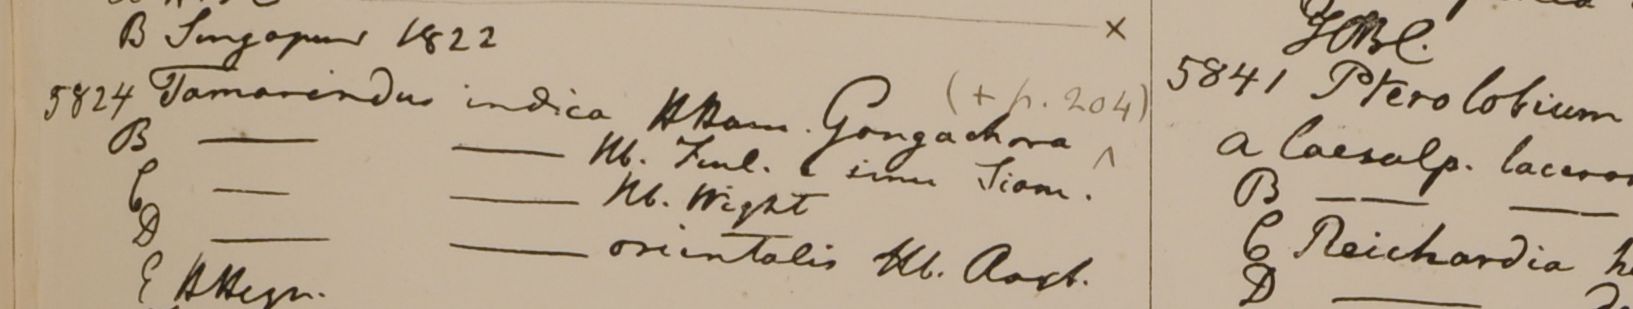 B Singapur 1822 ×
5824 Tamarindus indica HHam. Gongachora (+ p. 204)
B — — Hb. Finl. e sinu Siam. ^
C — — Hb. Wight
D — — orientalis Hb. Roxb.
E HHeyn.
5841 Pterolobium
a Caesalp.
B — —
C Reichardia
D —